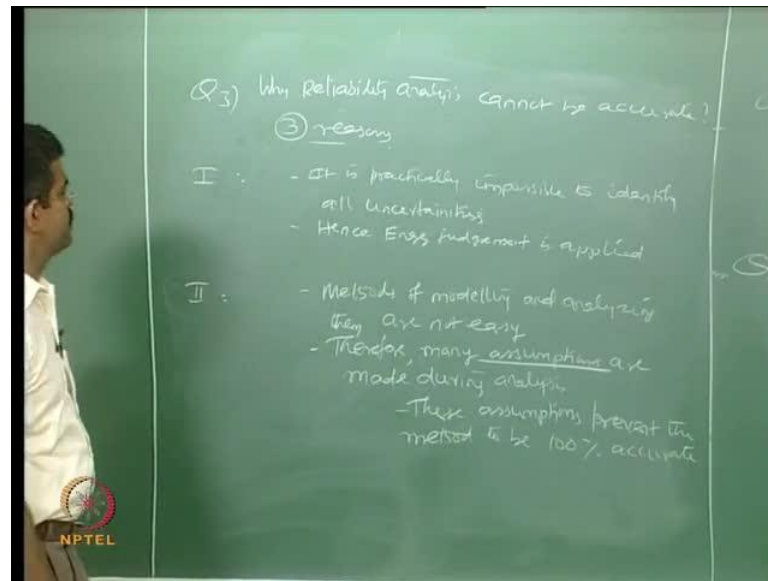 Q3) Why Reliability analysis cannot be accurate?
③ reasons
I : - It is practically impossible to identify
all uncertainities
- Hence Engg judgement is applied
II : - Methods of modelling and analyzing
them are not easy
- Therefore, many assumptions are
made during analysis
- These assumptions prevent the
method to be 100% accurate
NPTEL